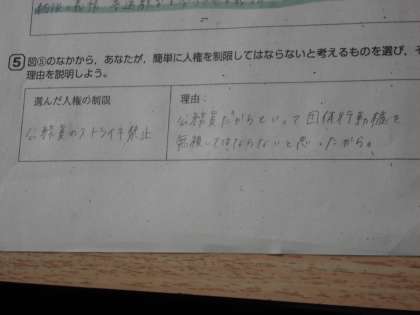 5 図⑤のなかから、あなたが、簡単に人権を制限してはならないと考えるものを選び、そ
理由を説明しよう。
選んだ人権の制限
理由：
公務員だからといって団体行動権を
公務員のストライキ禁止
無視してはならないと思ったから。